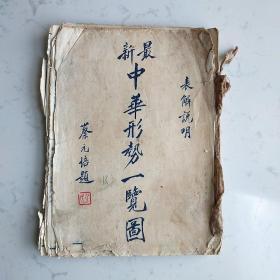 最新
中華形勢一覽圖
表解說明
蔡元培題